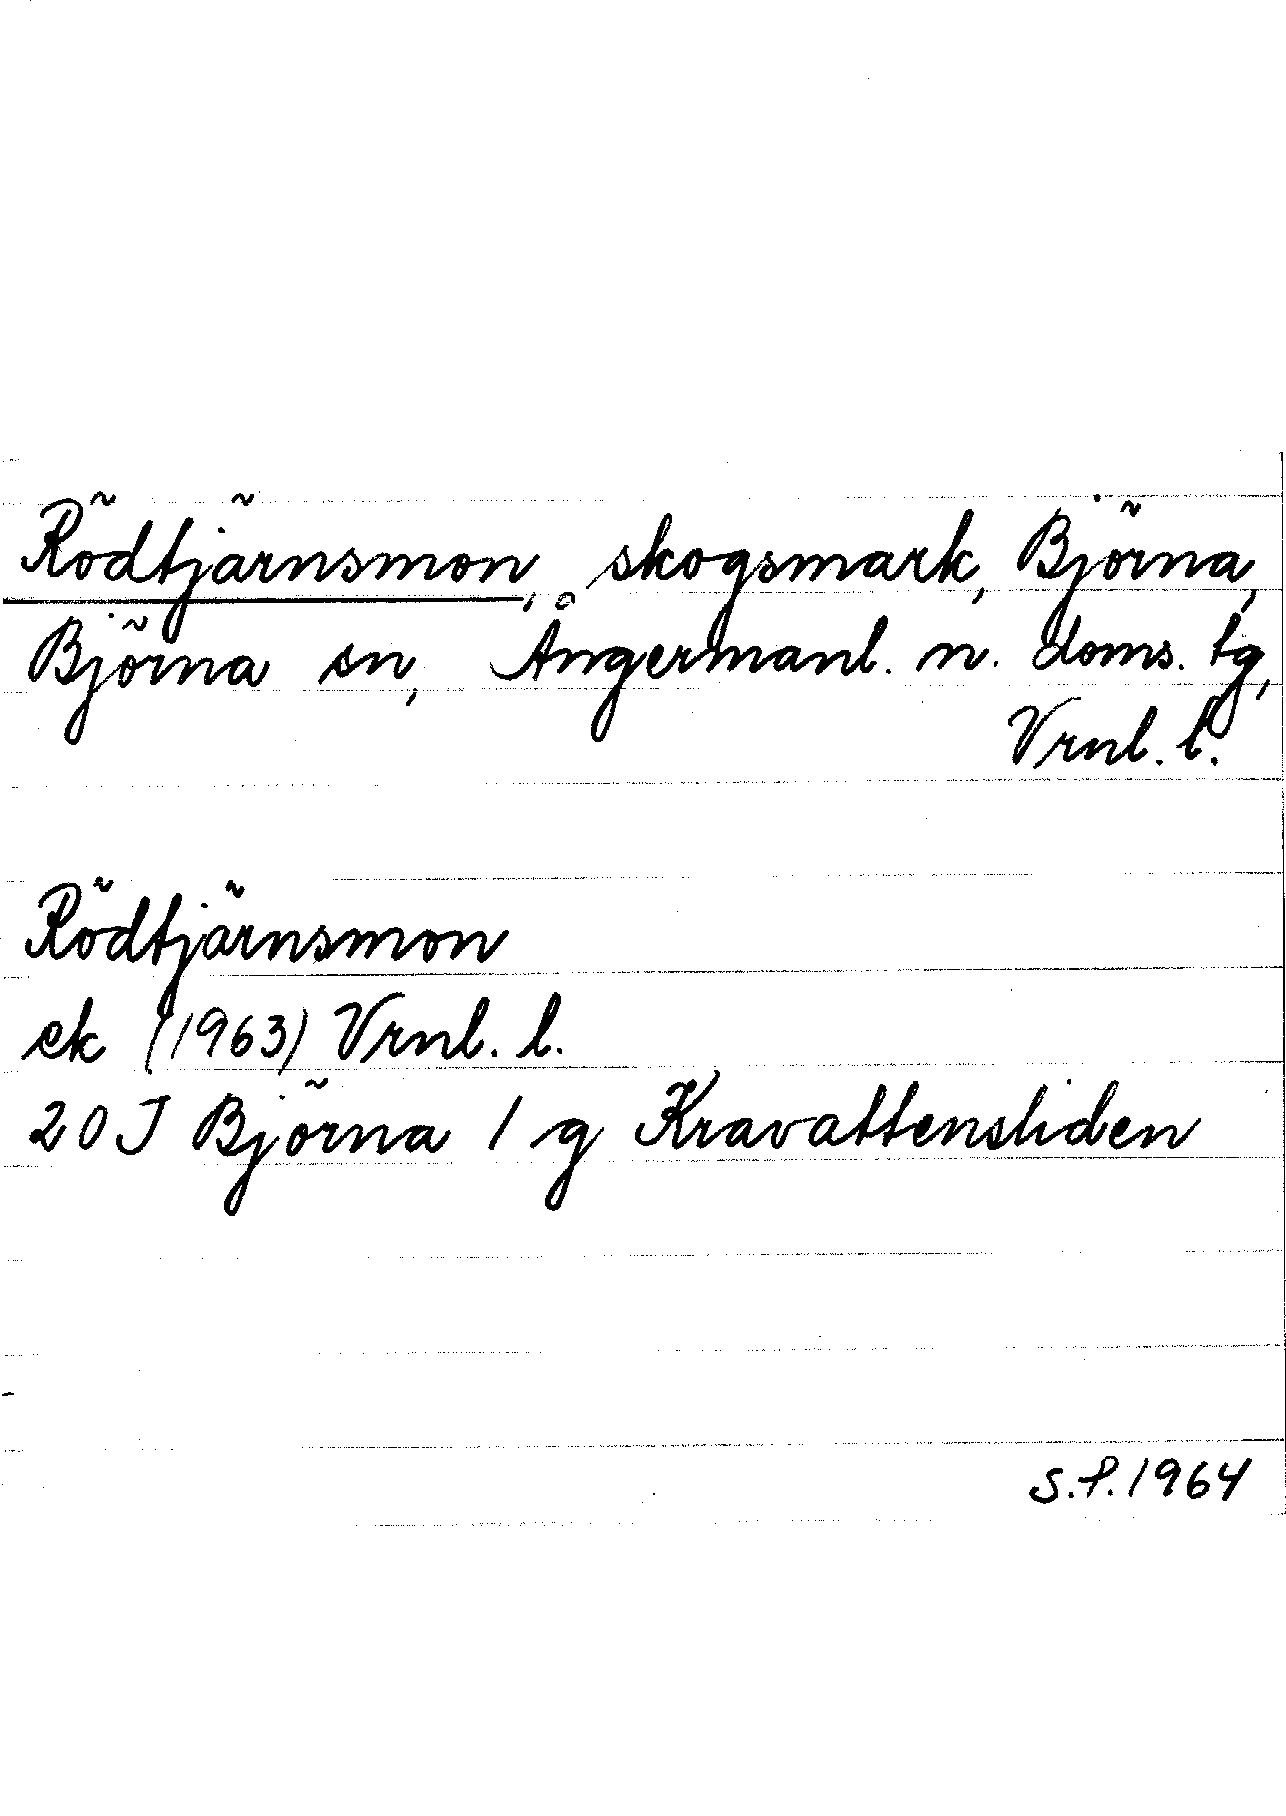 Rödtjärnsmon, skogsmark, Björna,
Björna sn, Ångermanl. n. doms. tg,
Vrnl. l.
Rödtjärnsmon
ek (1963) Vrnl. l.
20J Björna 1 g Kravattensliden
S.P. 1964